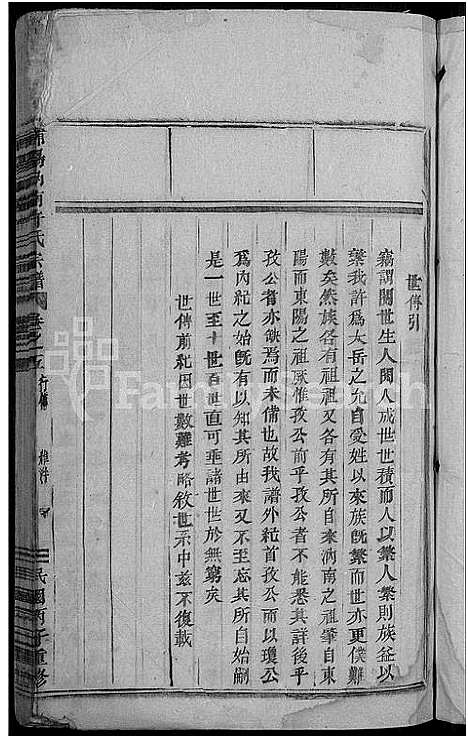 世傳引
竊謂閱世生人閱人成世世積而人以繁人繁則族益以
蘩我許爲太岳之允自受姓以來族旣繁而世亦更僕難
數矣然族各有祖祖又各有其所自來泃南之祖肇自東
陽而東陽之祖厥惟孜公前乎孜公者不能悉其詳後乎
孜公者亦缺焉而未備也故我譜外紀首孜公而以瓊公
爲內紀之始旣有以知其所由來又不至忘其所自始嗣
是一世至十世百世直可垂諸世世於無窮矣
世傳前紀因世數難考略敘世示中玆不復載
南許氏宗譜
卷之五
行傳
民國丙子重修
FamilySearch